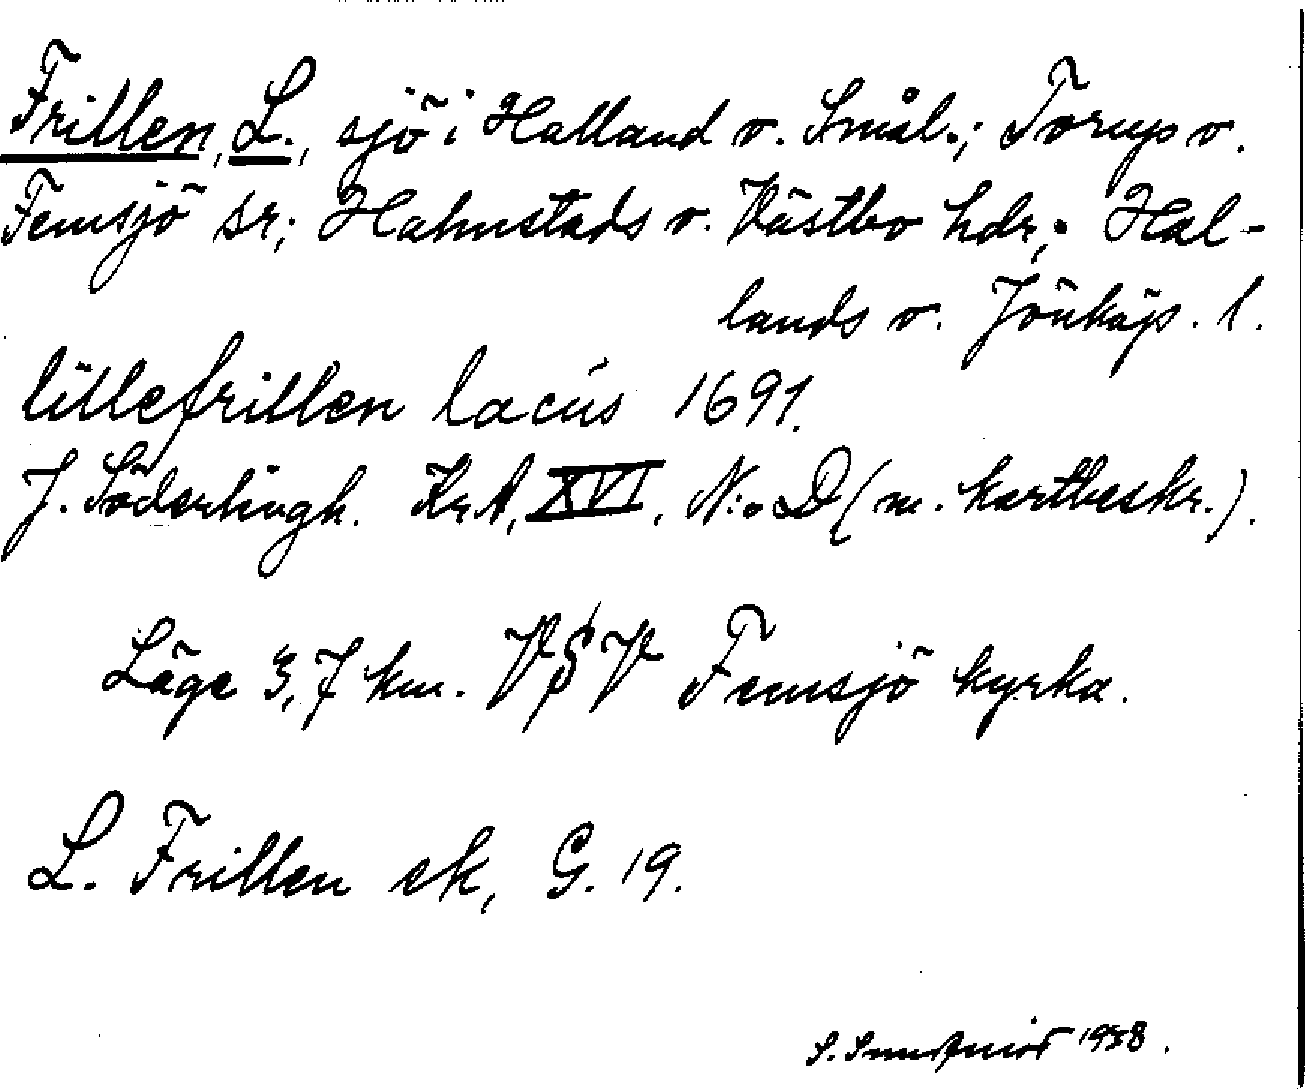 Frillen, L., sjö i Halland o. Smål.; Torup o.
Femsjö sr; Halmstads o. Västbo hdr; Hal-
lands o. Jönköp. l.
lillefrillen lacus 1691.
J. Söderlingh. KrA, XVI, N:o D (m. kartbeskr.).
Läge 3,7 km. VSV Femsjö kyrka.
L. Frillen ek, G. 19.
S. 1958.